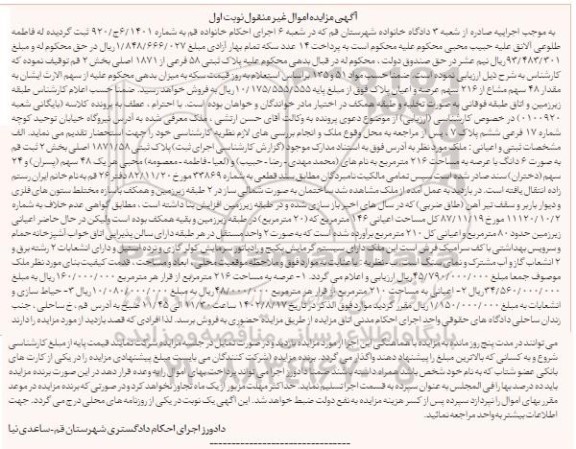 آگهی مزایده اموال غیر منقول نوبت اول
به موجب اجراییه صادره از شعبه ۳ دادگاه خانواده شهرستان قم که در شعبه ۶ اجرای احکام خانواده قم به شماره ۶/۱۴۰۱ج/۹۲۰ ثبت گردیده له فاطمه
طلوعی آلانق علیه حبیب محبی محکوم علیه محکوم است به پرداخت ۱۴ عدد سکه تمام بهار آزادی مبلغ ۱/۸۴۸/۶۶۶/۰۲۷ ریال در حق محکوم له و مبلغ
۹۳/۴۸۳/۳۰۱ ریال نیم عشر در حق صندوق دولت ، محکوم له در قبال بدهی محکوم علیه پلاک ثبتی ۵۸ فرعی از ۱۸۷۱ اصلی بخش ۲ قم توقیف نموده که
کارشناس به شرح ذیل ارزیابی نموده
مقدار ۴۸ سهم مشاع از ۲۱۶ سهم عرصه و اعیان پلاک فوق از مبلغ پایه ۱۰/۱۷۵/۵۵۵/۵۵۵ ریال به فروش خواهد رسید. ضمنا حسب اعلام کارشناس طبقه
زیرزمین و اتاق طبقه فوقانی به صورت تخلیه و طبقه همکف در اختیار مادر خواندگان و خواهان بوده است. با احترام ، عطف به پرونده کلاسه (بایگانی شعبه
۰۱۰۰۹۲۰) در خصوص کارشناسی (ارزیابی) از موضوع دعوی پرونده به وکالت آقای حسن ارتشی ، ملک معرفی شده به آدرس نیروگاه خیابان توحید کوچه
شماره ۱۷ فرعی ششم پلاک ۷ ، پس از مراجعه به محل وقوع ملک و انجام بررسی های لازم نظریه کارشناسی خود را جهت استحضار تقدیم می نماید. الف
مشخصات ثبتی و اعیانی : ملک مورد نظر به آدرس فوق به استناد مدارک موجود (گزارش کارشناسی اجرای ثبت) پلاک ثبتی ۱۸۷۱/۵۸ اصلی بخش ۲ ثبت قم
به صورت ۶ دانگ با عرصه به مساحت ۲۱۶ مترمربع به نام های (محمد مهدی-رضا-حبیب) و (لعیا-فاطمه-معصومه) محبی هر یک ۴۸ سهم (پسران) و ۲۴
سهم (دختران) سند صادر شده است سپس تمامی مالکیت نامبردگان مطابق سند قطعی به شماره ۳۳۸۶۹ مورخ ۸۲/۱۱/۲۰ دفتر ۲۶ قم به نام خانم ایران رستم
زاده انتقال یافته است. در بازدید به عمل آمده از ملک مشاهده شد، ساختمان به صورت شمالی ساز در ۲ طبقه زیرزمین و همکف با سازه مختلط ستون های فلزی
و دیوار باربر و سقف تیر آهن (طاق ضربی) که در سال های اخیر باز سازی شده و در طبقه زیرزمین افزایش بنا داشته است ، مطابق گواهی عدم خلاف به شماره
۱۱۱۲۰/۱۰/۲ مورخ ۸۷/۱۱/۱۹ کل مساحت اعیانی ۱۴۶ مترمربع که (۲۰ مترمربع) در طبقه زیرزمین و بقیه همکف بوده است ولیکن در حال حاضر اعیانی
زیرزمین حدود ۸۰ مترمربع و اعیانی کل ۲۱۰ مترمربع برآورده شده است که به صورت ۲ واحد مستقل در هر طبقه دارای سالن پذیرایی اتاق خواب آشپزخانه حمام
و سرویس بهداشتی با کف سرامیک فرش است این ملک دارای سیستم گرمایش پکیج و رادیاتور سرمایش کولر گازی و نرده استیل و دارای انشعابات ۲ رشته برق و
۲ انشعاب گاز و آب مشترک و نمای سنگ است. ب-نظریه : با عنایت به موارد فوق و ملاحظه موقعیت محلی ، ابعاد و مساحت ، قدمت کیفیت بنای مورد نظر ملک
موصوف جمعا مبلغ ۴۵/۷۹۰/۰۰۰/۰۰۰ ریال ارزیابی و اعلام می گردد. ۱-عرصه به مساحت ۲۱۶ مترمربع از قرار هر مترمربع ۱۶۰/۰۰۰/۰۰۰ ریال به مبلغ
۳۴/۵۶۰/۰۰۰/۰۰۰ ریال ۲-اعیانی به مساحت ۲۱۰ مترمربع از قرار هر مترمربع ۴۸/۰۰۰/۰۰۰ ریال به مبلغ ۱۰/۰۸۰/۰۰۰/۰۰۰ ریال ۳-حیاط سازی و
انشعابات به مبلغ ۱/۱۵۰/۰۰۰/۰۰۰ ریال مقرر گردید موارد فوق الذکر در تاریخ ۱۴۰۲/۸/۱۷ از ساعت ۱۱/۳۰ الی ۱۱/۴۵ صبح به آدرس قم ، خ ساحلی ، جنب
زندان ساحلی دادگاه های حقوقی واحد اجرای احکام مدنی اتاق مزایده از طریق مزایده حضوری به فروش برسد. لذا افرادی که قصد بازدید از مورد مزایده را دارند
می توانند در مدت پنج روز مانده به مزایده با هماهنگی این اجرا از مورد مزایده بازدید و در صورت تمایل در جلسه مزایده شرکت نمایند قیمت پایه از مبلغ کارشناسی
شروع و به کسانی که بالاترین مبلغ را پیشنهاد دهند واگذار می گردد. برنده مزایده (شرکت کنندگان می بایست مبلغ پیشنهادی مزایده را در یکی از کارت های
بانکی عضو شتاب که به نام خود شخص باشد همراه داشته باشند
باید ده درصد بها را فی المجلس به عنوان سپرده به قسمت اجرا تسلیم نماید. حداکثر مهلت مزبور از یک ماه تجاوز نخواهد کرد و در صورتی که برنده مزایده در موعد
مقرر بهای اموال را نپردازد سپرده پس از کسر هزینه مزایده به نفع دولت ضبط خواهد شد. این آگهی یک نوبت در یکی از روزنامه های محلی درج می گردد. جهت
اطلاعات بیشتر به واحد مراجعه نمائید.
دادورز اجرای احکام دادگستری شهرستان قم-ساعدی نیا